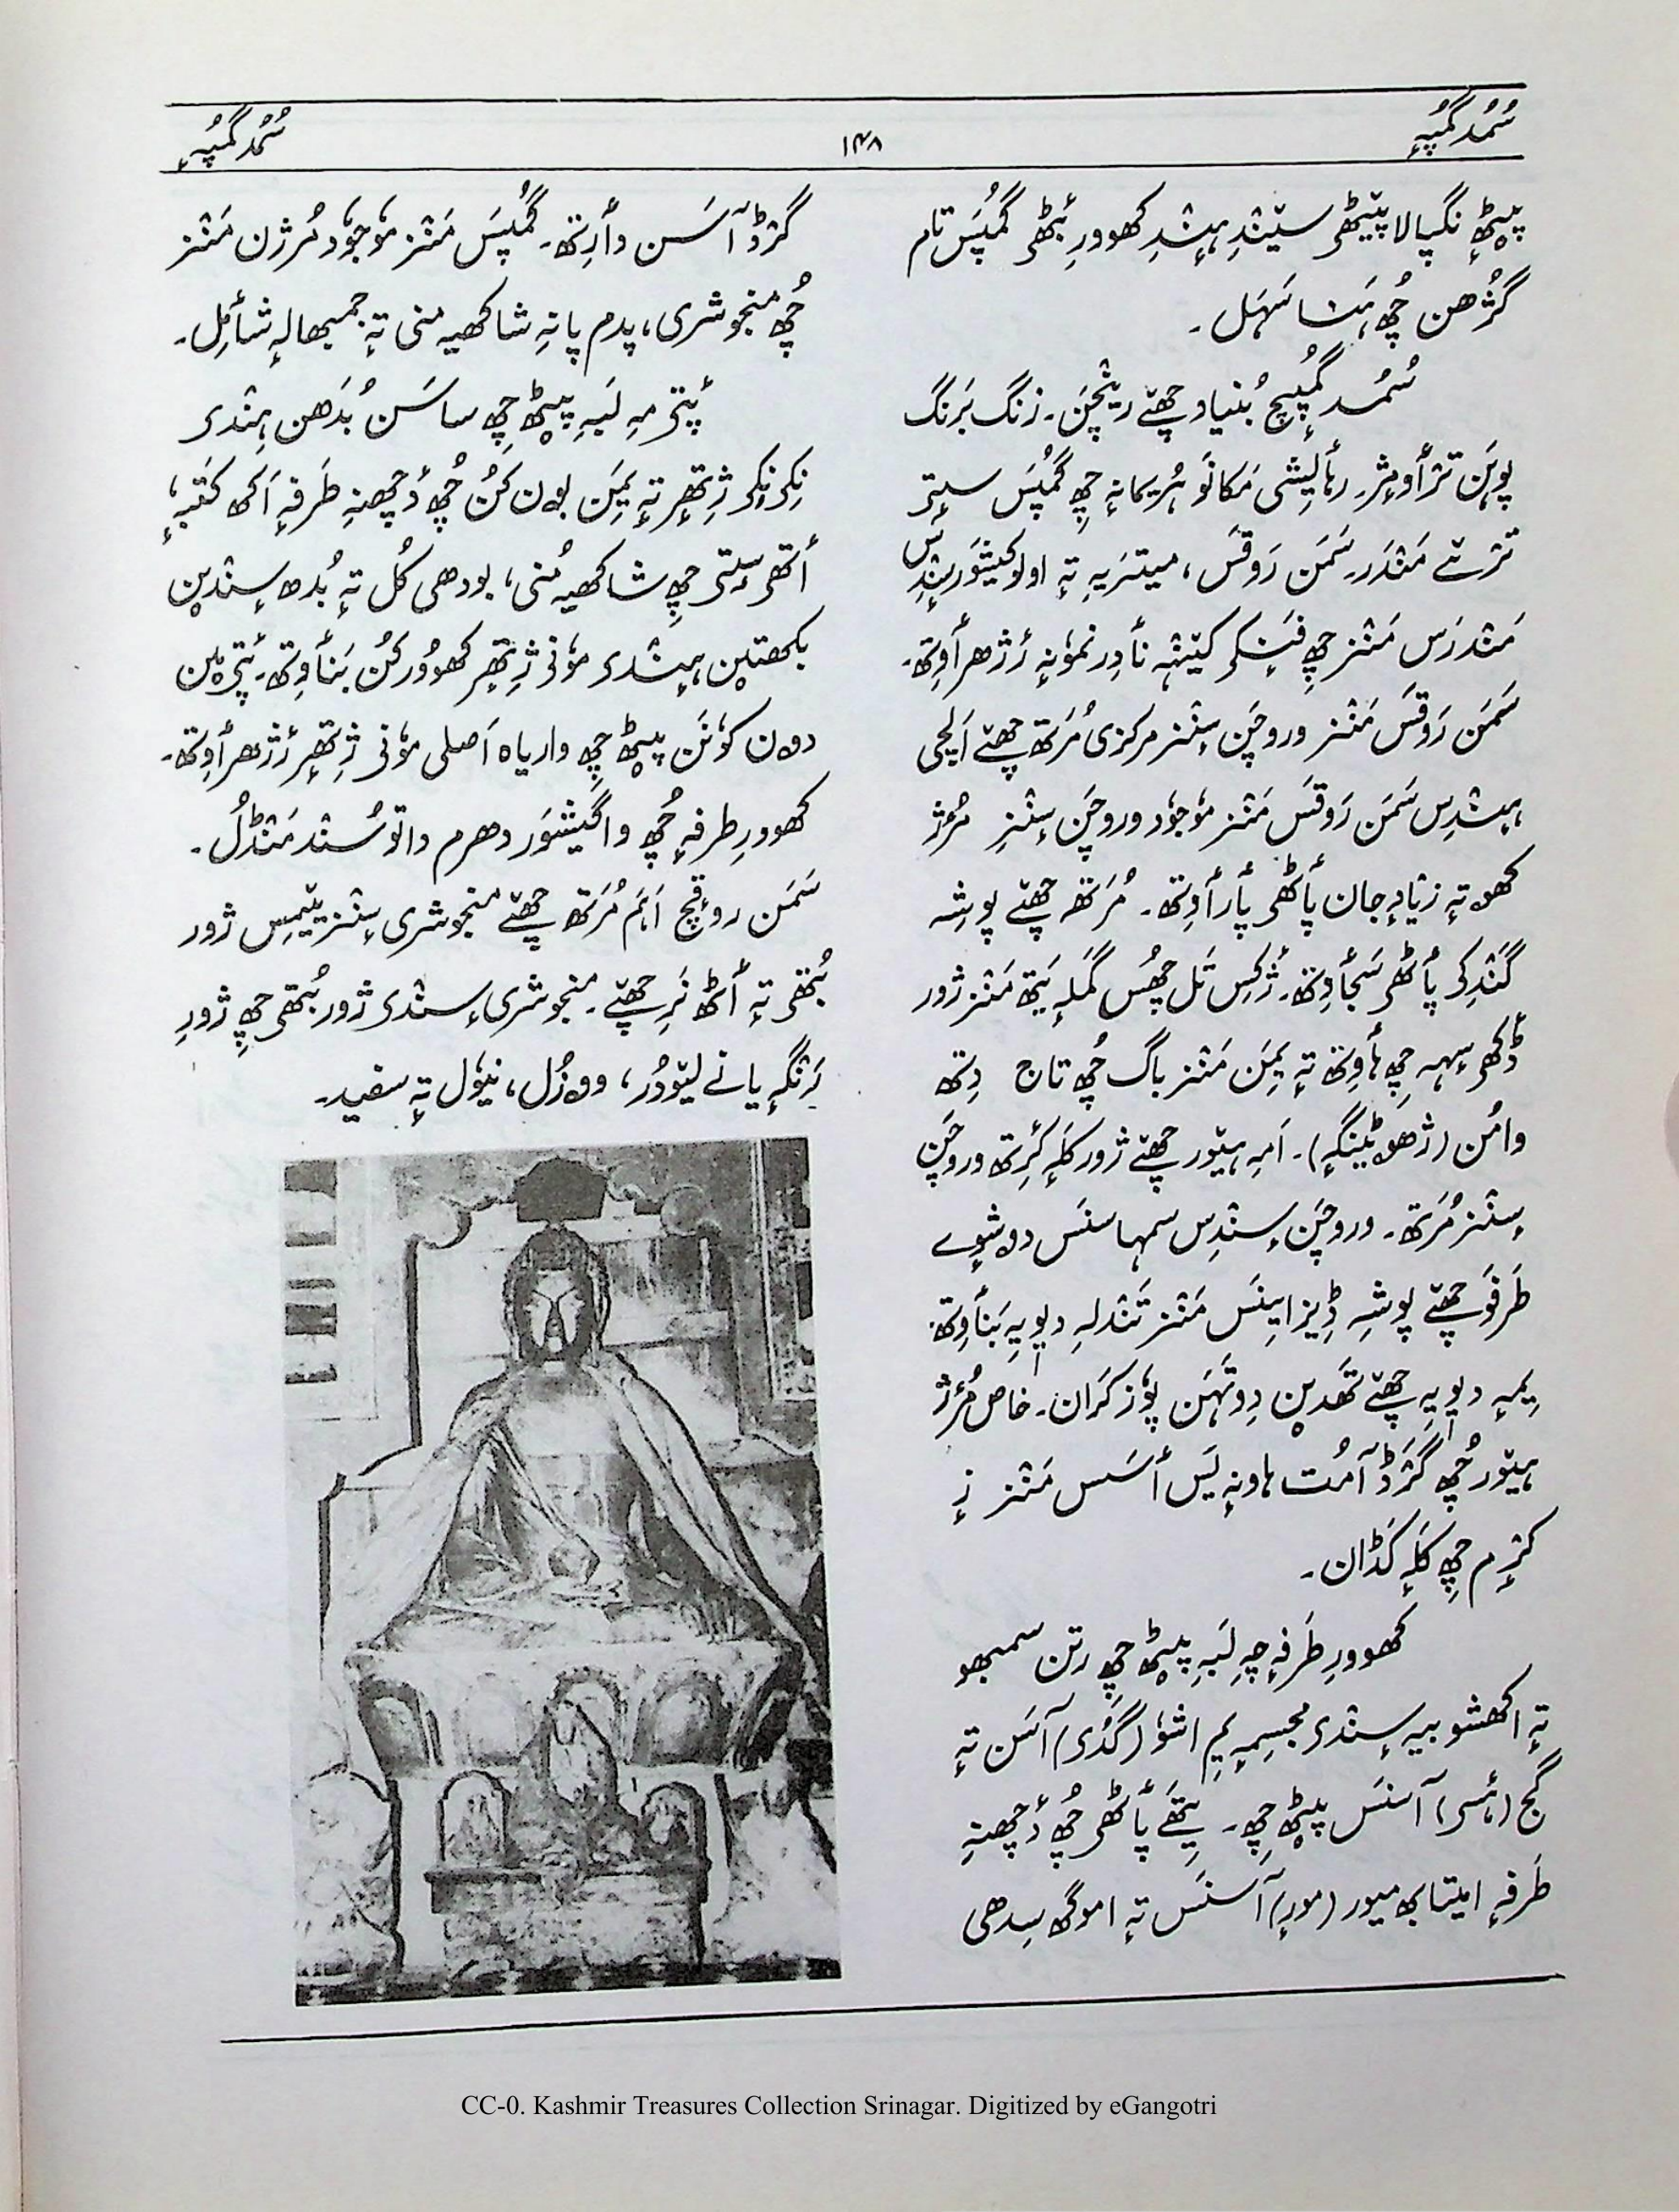 سُمُد گمپہٕ
۱۴۸
سُمُد گمپہٕ
پیٹھٕ نگپالا پیٚٹھۍ سیٚندِ ہِندِ کھووٕرِ بٔٹھۍ گمُپَس تام
گژُھن چُھ ہَنا سَہَل ۔
سُمُد گمپٕچ بُنیاد چھےٚ رینٛچَن ۔ زنگ بَرنگ
پوہَن ترٛأوِمٕژ۔ رہأیشی مَکانَو ہُریمانہٕ چِھ گمُپَس سیتۍ
ترٛے مَندَر۔ سَمَن رَوقَس، میتریہ تہٕ اولوکیتوَر سٕندِس
مَندرَس مَنٛز چِھ فَنٕکۍ کیٚنٛہہ نأدِر نموٗنہٕ رٔژھرأوِتھ۔
سَمَن رَوقَس مَنٛز وروچَن سٕنٛز مرکزی مُرَتھ چھےٚ اَلچی
ہِندِس سَمَن رَوقَس مَنٛز موٗجوٗد وروچَن سٕنٛزِ مُرٕژ
کھوتہٕ زیادٕ جان پأٹھۍ پأرأوِتھ۔ مُرَتھ چھےٚ پوشہِ
گَنٛدِکۍ پأٹھۍ سَجأوِتھ۔ ژٔکِس تَل چُھس گَملہٕ یَتھ مَنٛز ژور
ڈٔکھۍ سہہ چِھ ہأوِتھ تہٕ یِمَن مَنٛز باگ چُھ تاج دِتھ
وامُن (ژھوٚٹینگہٕ)۔ اَمہِ ہیٚور چھےٚ ژور کَلہٕ کٔرِتھ وروچَن
سٕنٛز مُرَتھ۔ وروچَن سٕندِس سمہاسنَس دوشوے
طَرفَو چھےٚ پوشہِ ڈِیزاینَس مَنٛز تَندلہِ دیویہِ بَنأوِتھ۔
یِمہٕ دیویہِ چھےٚ تھَدیٚن دِوتہَن پوٗز کَران۔ خاص مُرٕژ
ہیٚور چُھ گَرُڈ آمُت ہاونہٕ یَس أسَس مَنٛز زٕ
کرٛم چِھ کَلہٕ کَڈان۔
کھووٕرِ طَرفہٕ چہِ لَبہِ پیٹھ چِھ رتن سمبھو
تہٕ اکھشوبیہ سٕندۍ مجسمہٕ یِم اشوٗ (گُرۍ) آسَن تہٕ
گج (ۂسۍ) آسنَس پیٹھ چِھ۔ یِتھَے پأٹھۍ چُھ دٔچھنہِ
طَرفہٕ امیتابھ میور (مور) آسنَس تہٕ اموگھ سِدھی
گرُڈ آسَن دأرِتھ۔ گمُپَس مَنٛز موٗجوٗد مُرژن مَنٛز
چُھ منجوشری، پدم پانہِ شاکھیہ منی تہٕ جمبھالہٕ شأمِل۔
پٔتِمہِ لَبہِ پیٹھ چِھ ساسَن بُدَھن ہِنٛدۍ
نِکۍ نِکۍ ژٕتھرٕ تہٕ یِمَن بۄن کُن چُھ دٔچھنہِ طَرفہٕ اَکھ کَتبہٕ،
أتھۍ سٟتۍ چِھ شاکھیہ مُنی، بودھی کُل تہٕ بُدھ سٕندیٚن
بکھتیٚن ہِنٛدۍ موٗنی ژٕتھرٕ کھووُر کُن بَنأوِتھ۔ پٔتمیٚن
دۄن کوٗنَن پیٹھ چِھ واریاہ اَصلی موٗنی ژٕتھرٕ رٔژھرأوِتھ۔
کھووٕرِ طرفہٕ چُھ واگیشوَر دھرم داتو سُنٛد مَنڈُل۔
سَمَن روقٕچ اَہَم مُرَتھ چھےٚ منجوشری سٕنٛز یٚمِس ژور
بُتھۍ تہٕ أٹھ نَرِ چھےٚ۔ منجوشری سٕنٛدۍ ژور بُتھۍ چِھ ژورِ
رَنٛگہٕ یانے لیٚودُر، ووزُل، نیوٗل تہٕ سفید۔
CC-0. Kashmir Treasures Collection Srinagar. Digitized by eGangotri